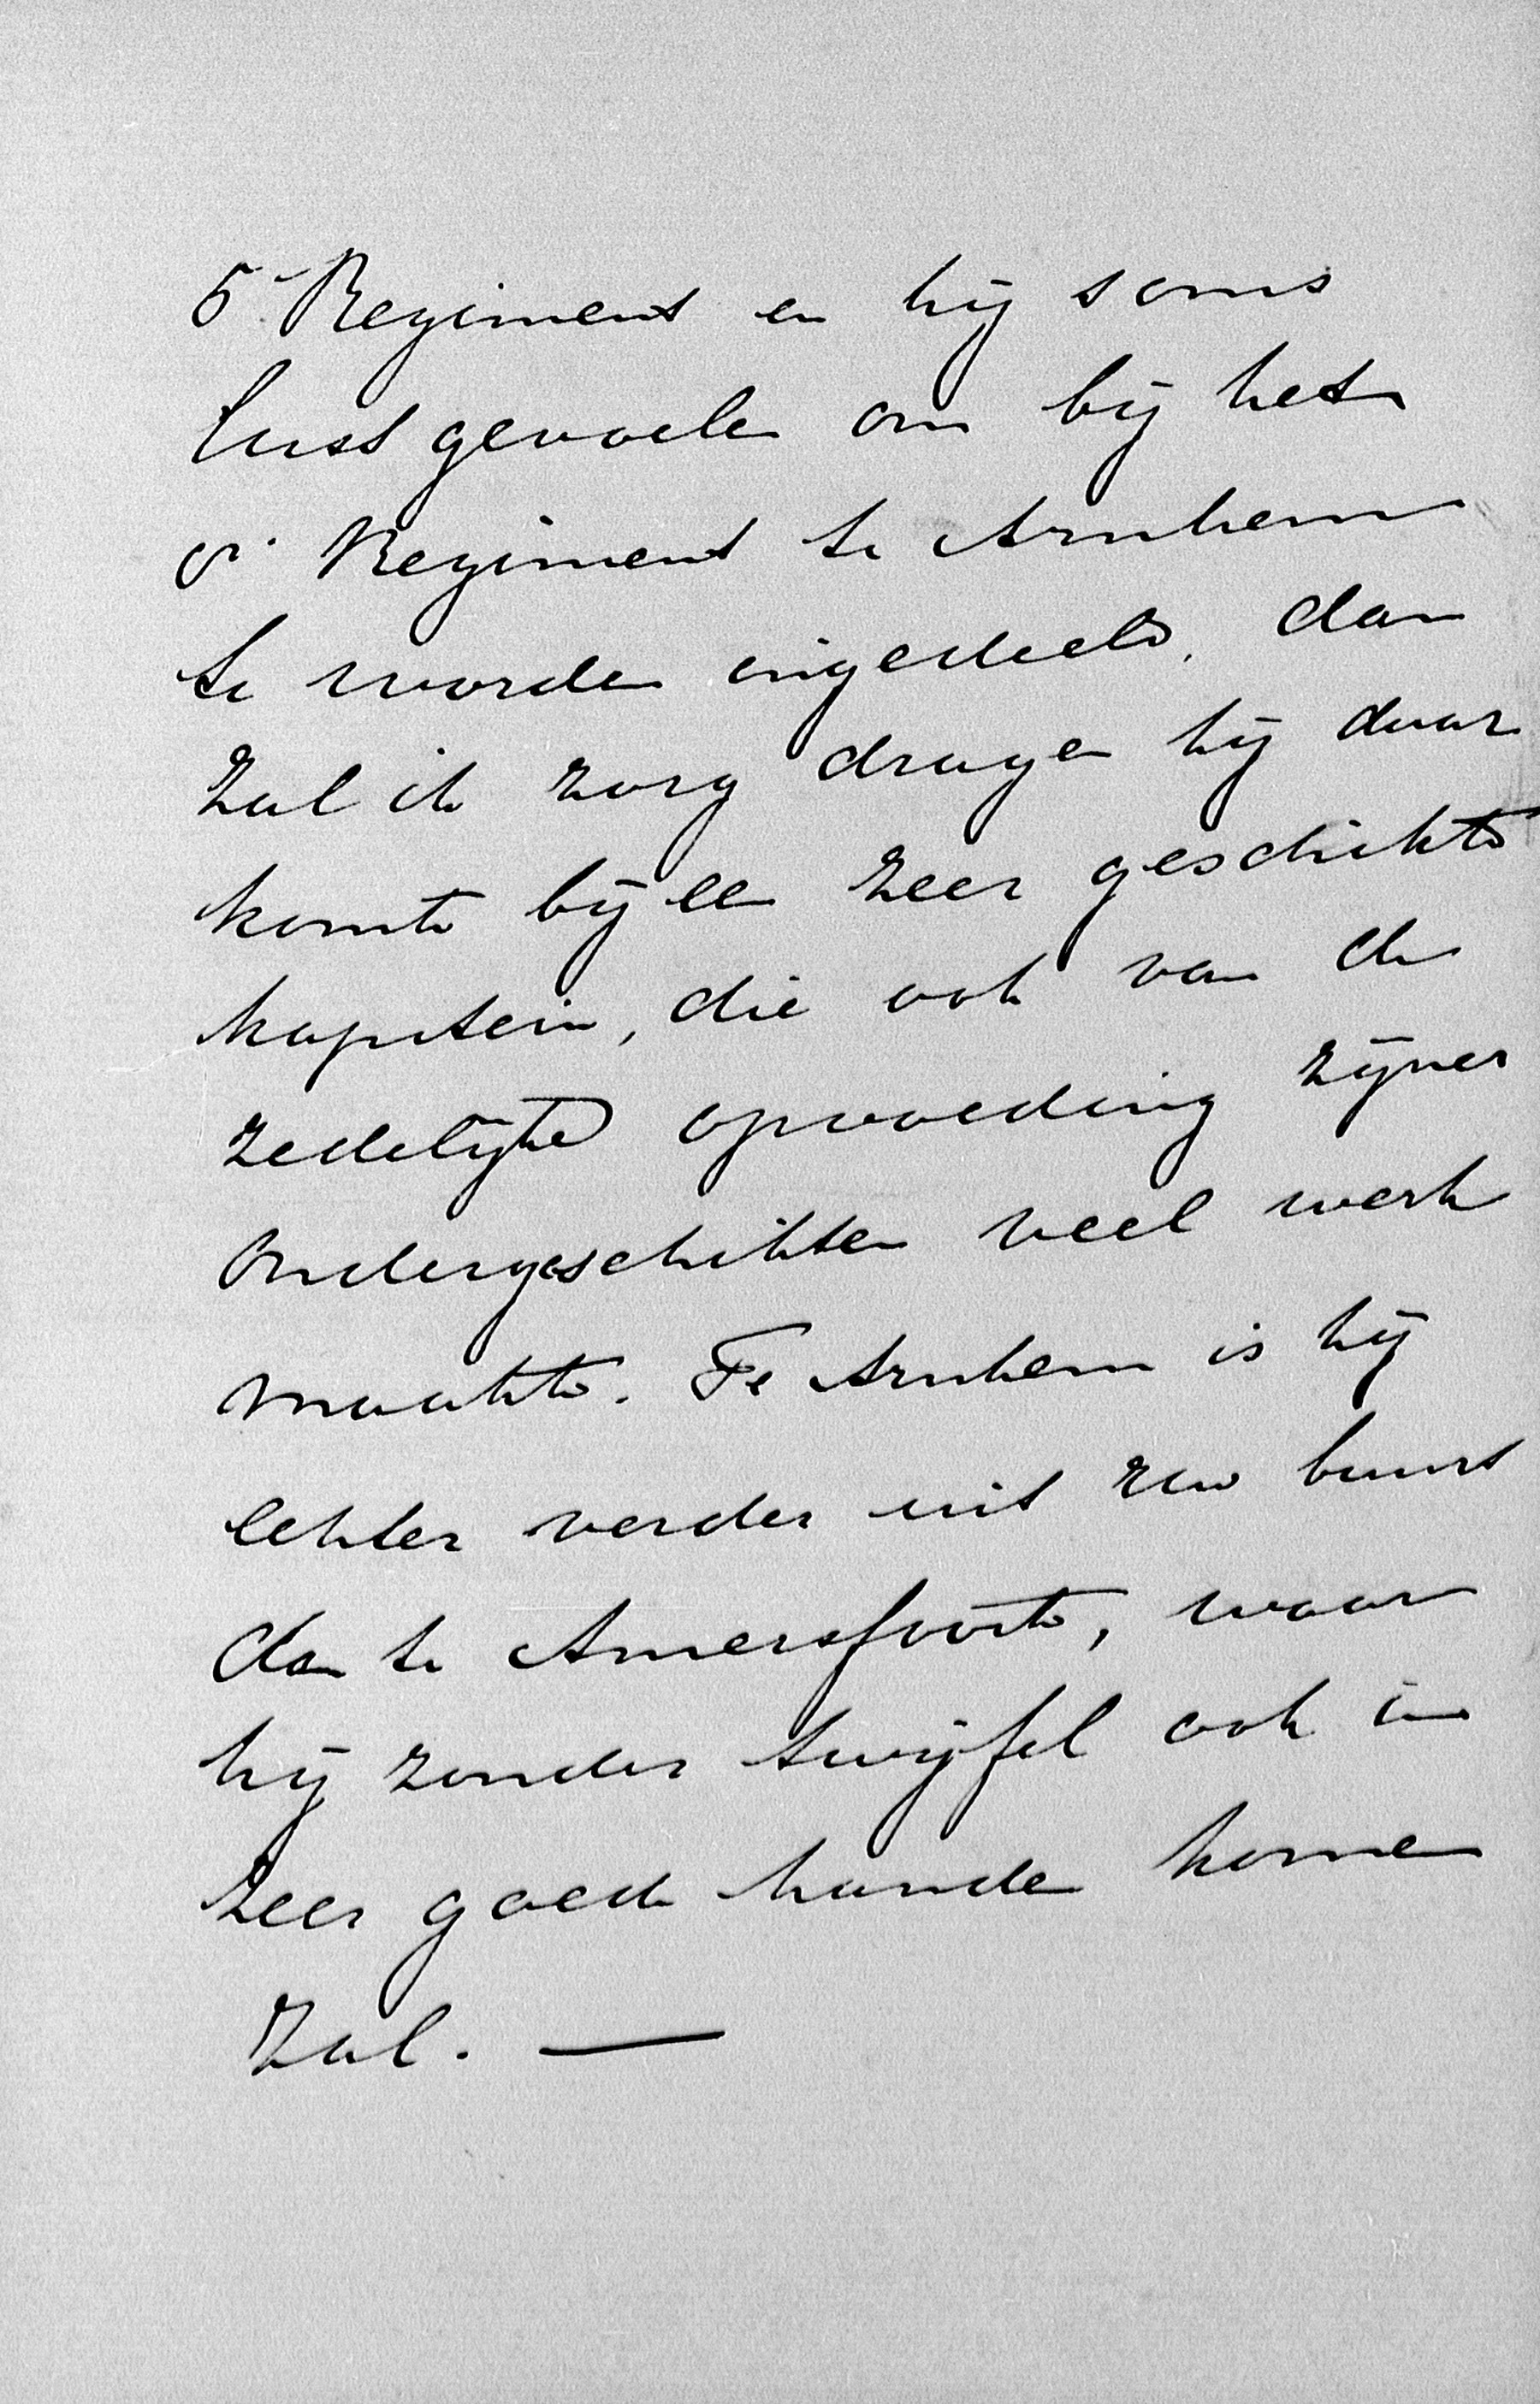 5e Regiment en hij soms
lust gevoelen om bij het
8e Regiment te Arnhem
te worden ingedeeld, dan
zal ik zorg dragen hij daar
komt bij een zeer geschikte
kapitein, die ook van de
zedelijke opvoeding zijner
ondergeschikten veel werk
maakte. Te Arnhem is hij
echter verder uit uw buurt
dan te Amersfoort, waar
hij zonder twijfel ook in
zeer goede handen komen
zal. —